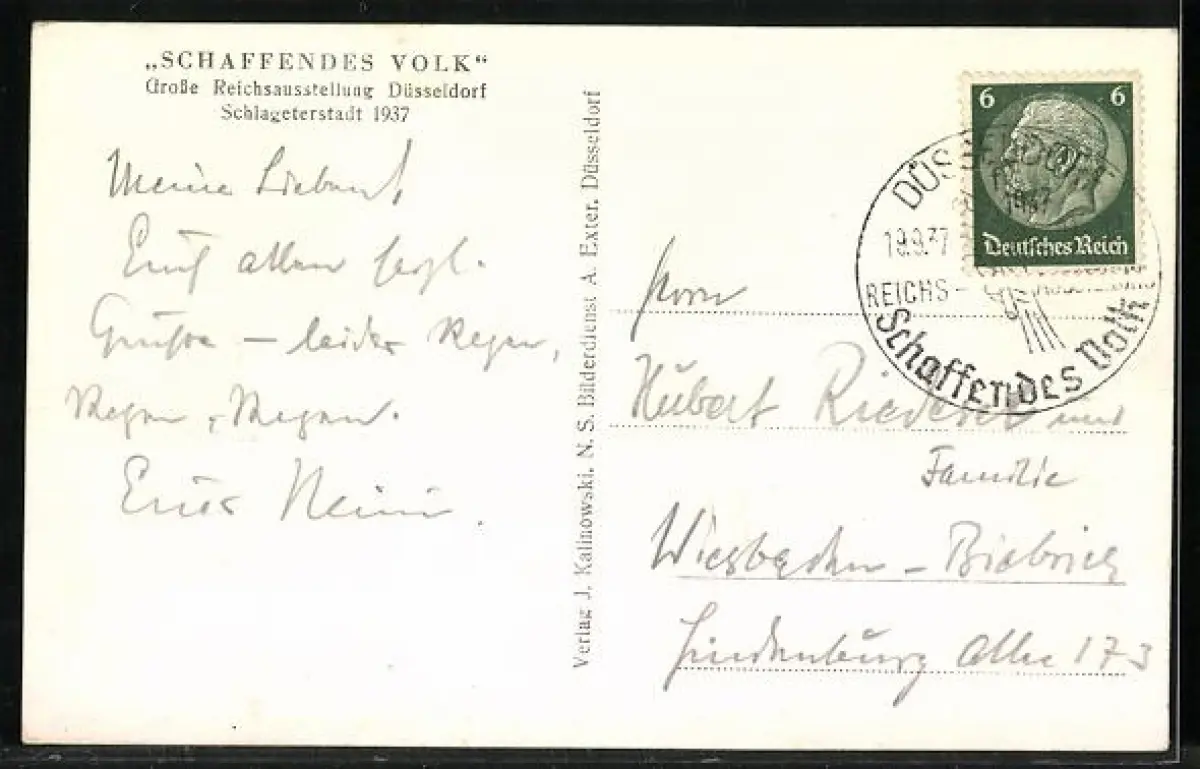 „SCHAFFENDES VOLK“
Große Reichsausstellung Düsseldorf
Schlageterstadt 1937
Meine Lieben!
Euch allen herzl.
Grüsse – leider Regen,
Regen, Regen.
Euer Heini.
Verlag J. Kalinowski, N. S. Bilderdienst A. Exter, Düsseldorf
6 6
Deutsches Reich
DÜSSELDORF
1937
19.9.37
REICHS-
Schaffendes Volk
Herrn
Hubert und
Familie
Wiesbaden – Biebrich
Hindenburg Allee 173